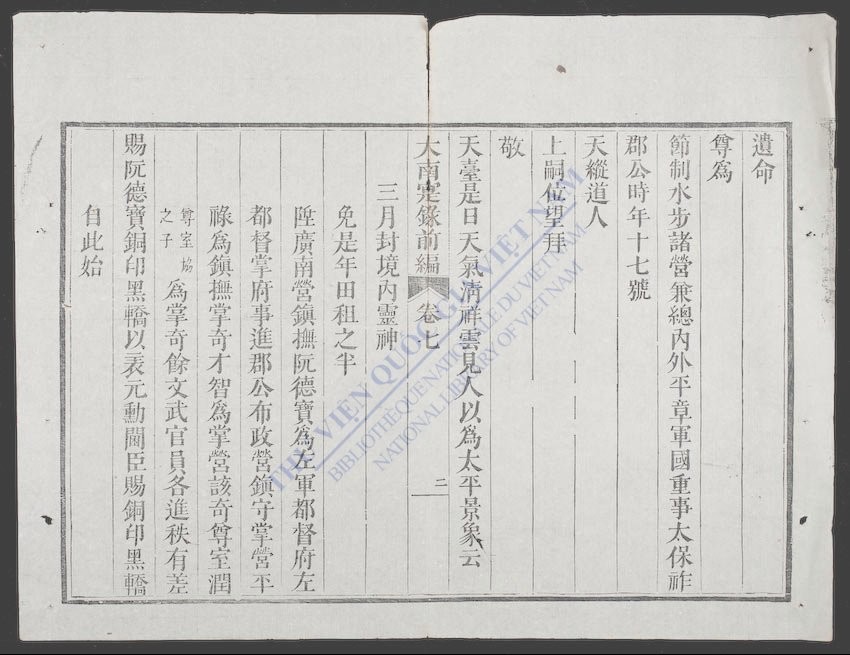 遺命
尊爲
節制水步諸營兼總內外平章軍國重事太保祚
郡公時年十七號
天縱道人
上嗣位望拜
敬
天臺是日天氣清祥雲見人以爲太平景象云
大南寔錄前編 卷七 二
三月封境內靈神
免是年田租之半
陞廣南營鎮撫阮德寶爲左軍都督府左
都督掌府事進郡公布政營鎮守掌營平
祿爲鎮撫掌奇才智爲掌營該奇尊室潤
尊室協
之子
爲掌奇餘文武官員各進秩有差
賜阮德寶銅印黑轎以表元勳閫臣賜銅印黑轎
自此始
THƯ VIỆN QUỐC GIA VIỆT NAM
BIBLIOTHÈQUE NATIONALE DU VIETNAM
NATIONAL LIBRARY OF VIET NAM